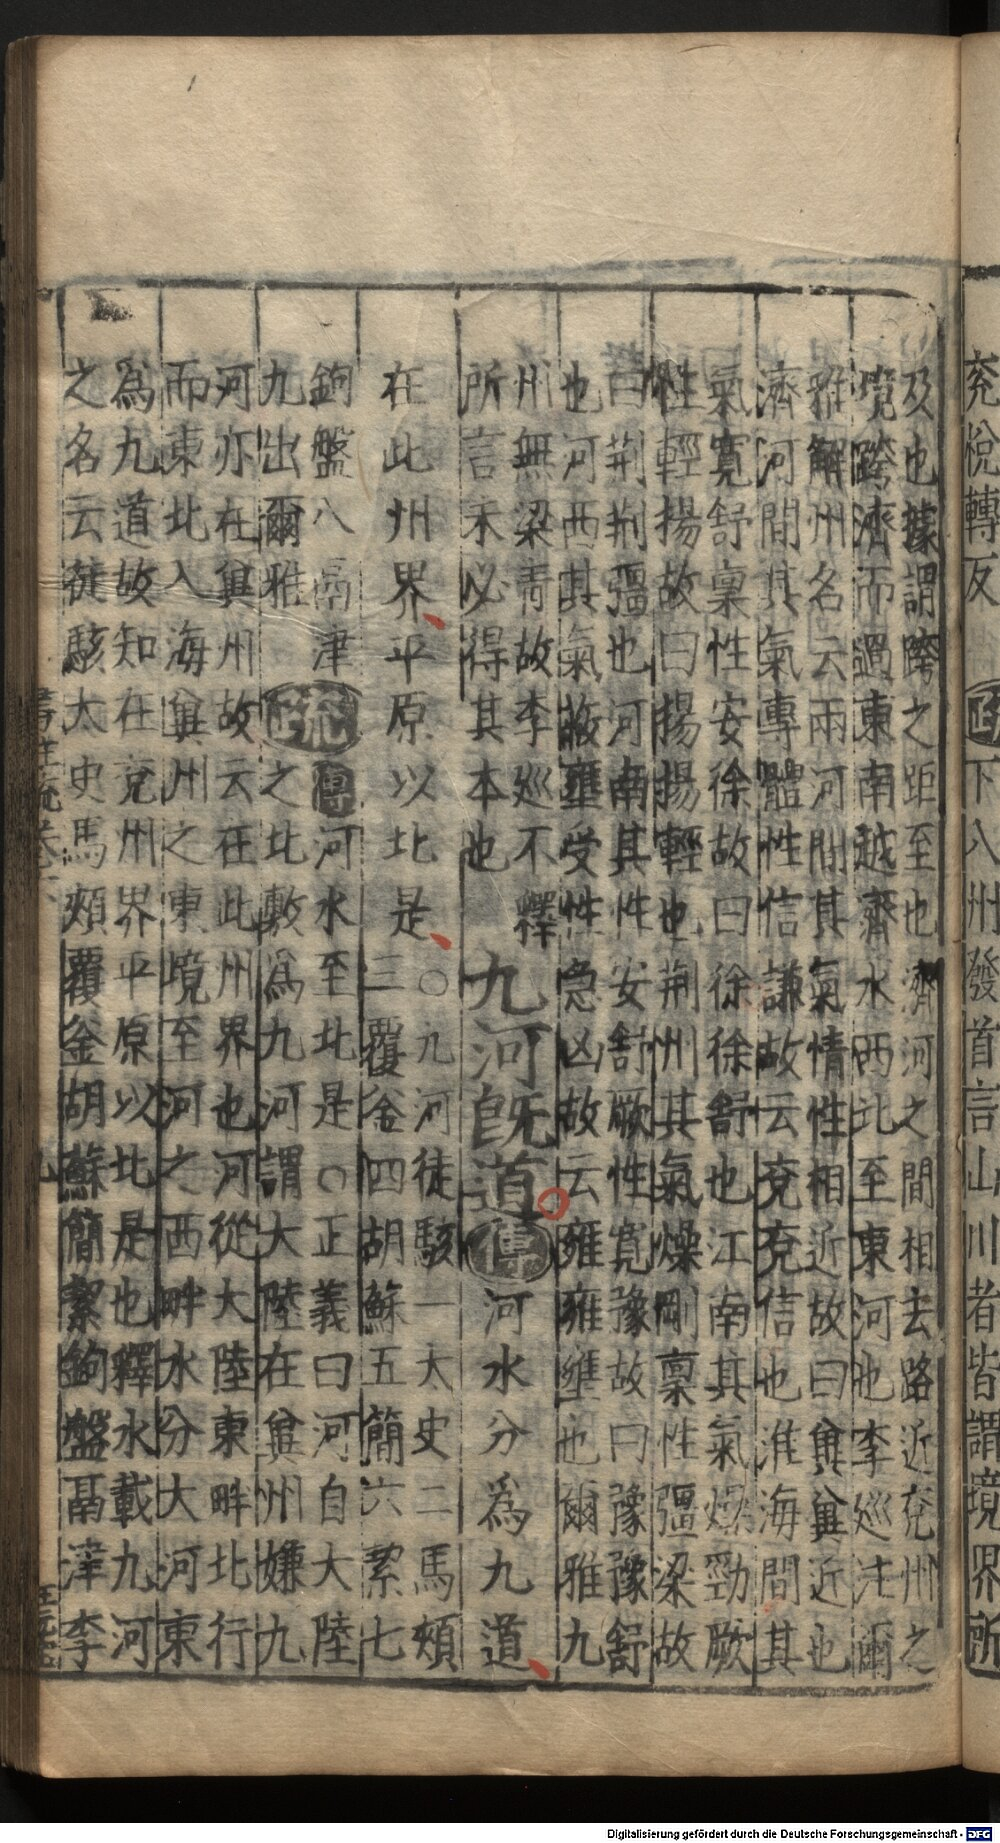 兖悅轉反疏下八州發首言山川者皆謂境界所
及也據謂跨之距至也濟河之間相去路近兖州之
境跨濟而過東南越濟水西北至東河也李巡注爾
雅解州名云兩河間其氣情性相近故曰兾兾近也
濟河間其氣專體性信謙故云兖兖信也淮海間其
氣寬舒稟性安徐故曰徐徐舒也江南其氣燥勁厥
性輕揚故曰揚揚輕也荆州其氣燥剛稟性彊梁故
曰荆荆彊也河南其性安舒厥性寬豫故曰豫豫舒
也河西其氣蔽壅受性急凶故云雍雍壅也爾雅九
州無梁青故李巡不釋
所言未必得其本也
九河既道傳河水分為九道
在此州界平原以北是
○九河徒駭一太史二馬頰
三覆釜四胡蘇五簡六絜七
鉤盤八鬲津
九出爾雅
疏
傳河水至北是○正義曰河自大陸
之北敷為九河謂大陸在兾州嫌九
河亦在兾州故云在此州界也河從大陸東畔北行
而東北入海兾州之東境至河之西畔水分大河東
為九道故知在兖州界平原以北是也釋水載九河
之名云徒駭太史馬頰覆釜胡蘇簡絜鉤盤鬲津李
Digitalisierung gefördert durch die Deutsche Forschungsgemeinschaft - DFG